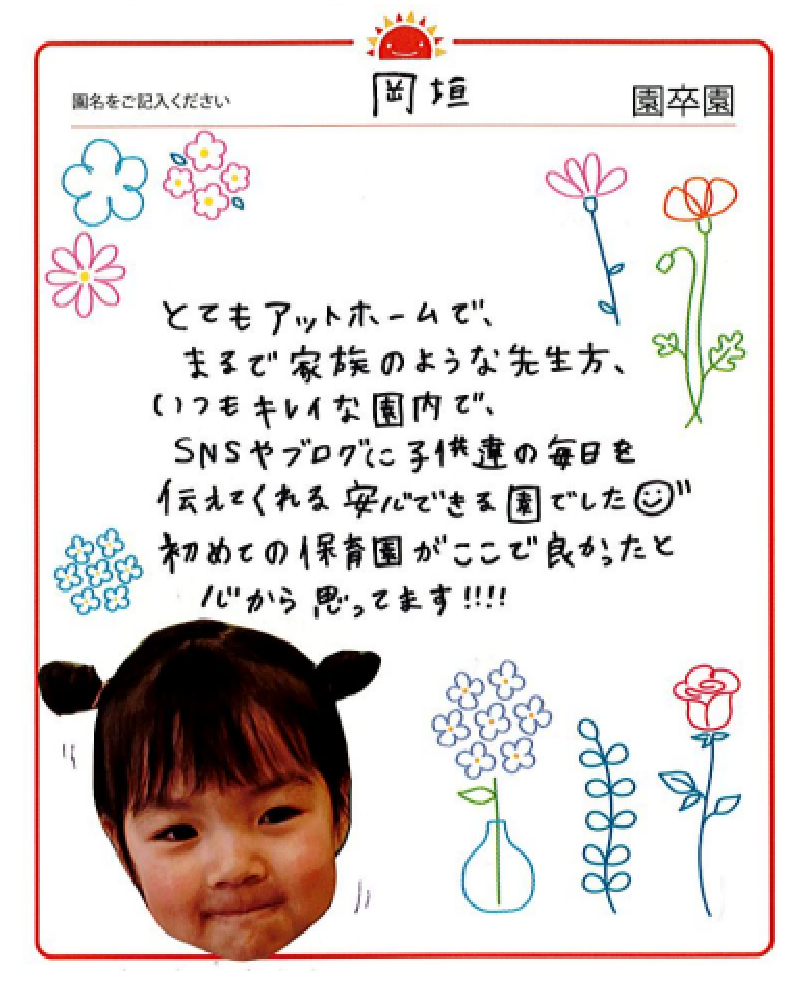 園名をご記入ください 岡垣 園卒園
とてもアットホームで、
まるで家族のような先生方、
いつもキレイな園内で、
SNSやブログに子供達の毎日を
伝えてくれる安心できる園でした
初めての保育園がここで良かったと
心から思ってます!!!!